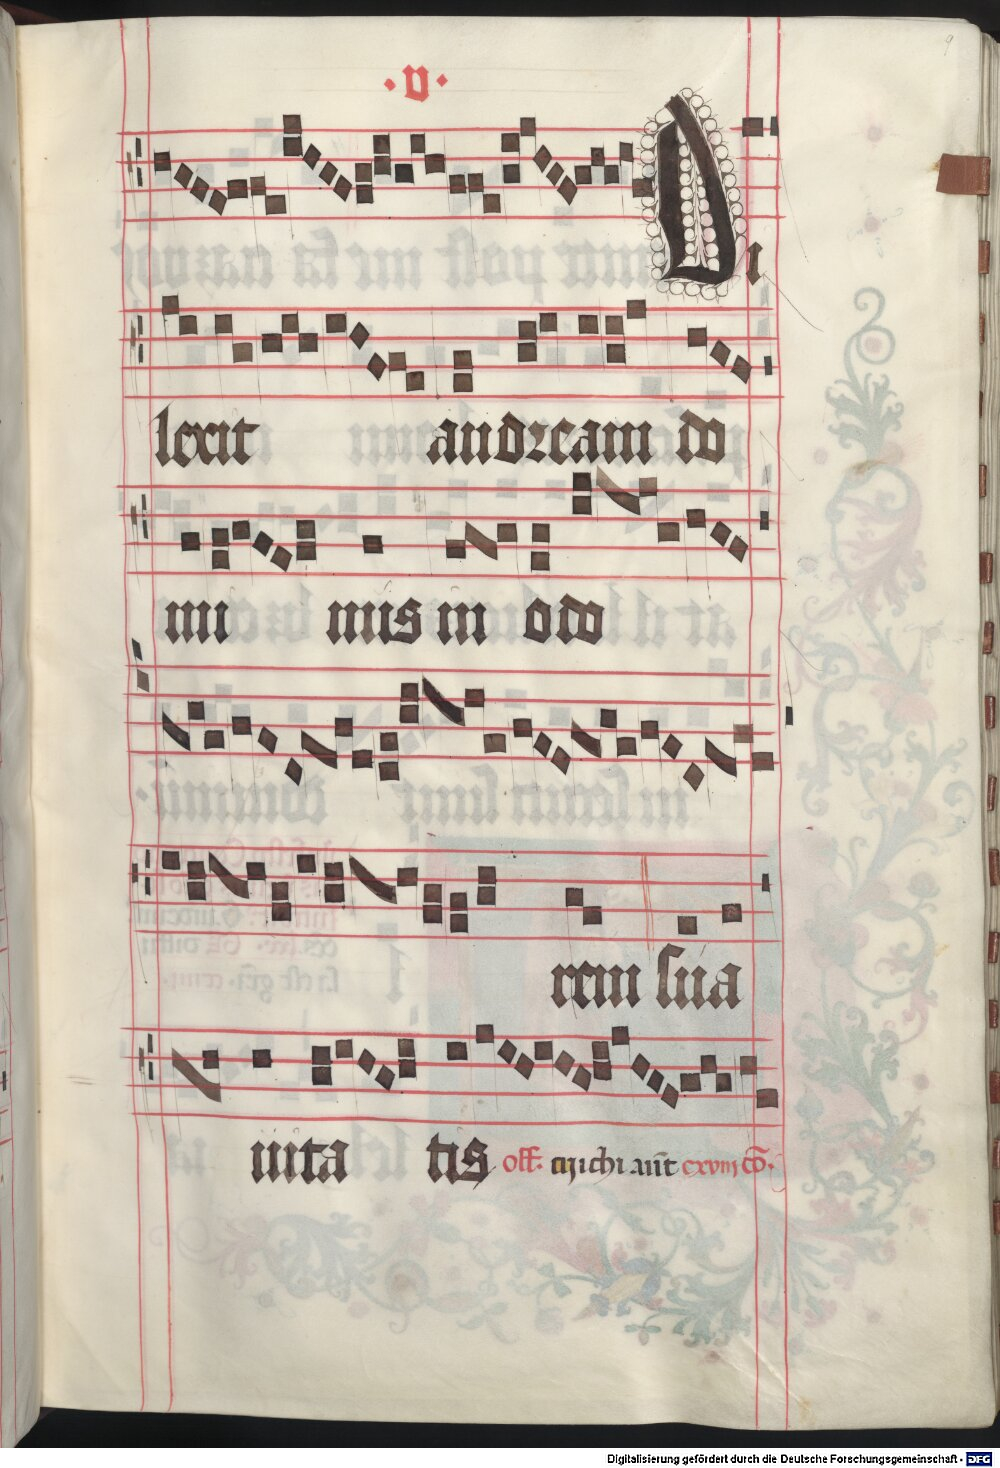 ·v·
9
Di
lexit andream do
mi nus in odo
rem sua
uita tis off. michi aut cxviij co.
Digitalisierung gefördert durch die Deutsche Forschungsgemeinschaft - DFG